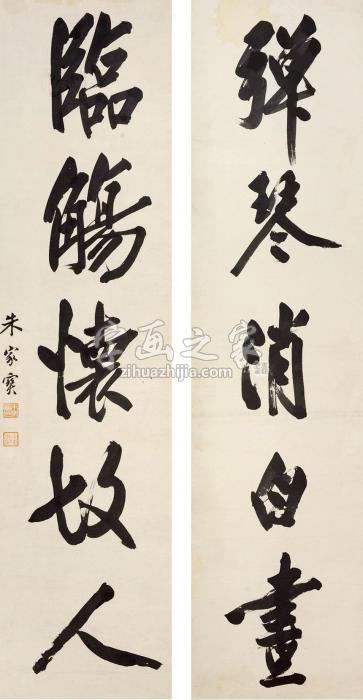 彈琴消白晝
臨觴懷故人
朱家寶
字画之家
zihuazhijia.com